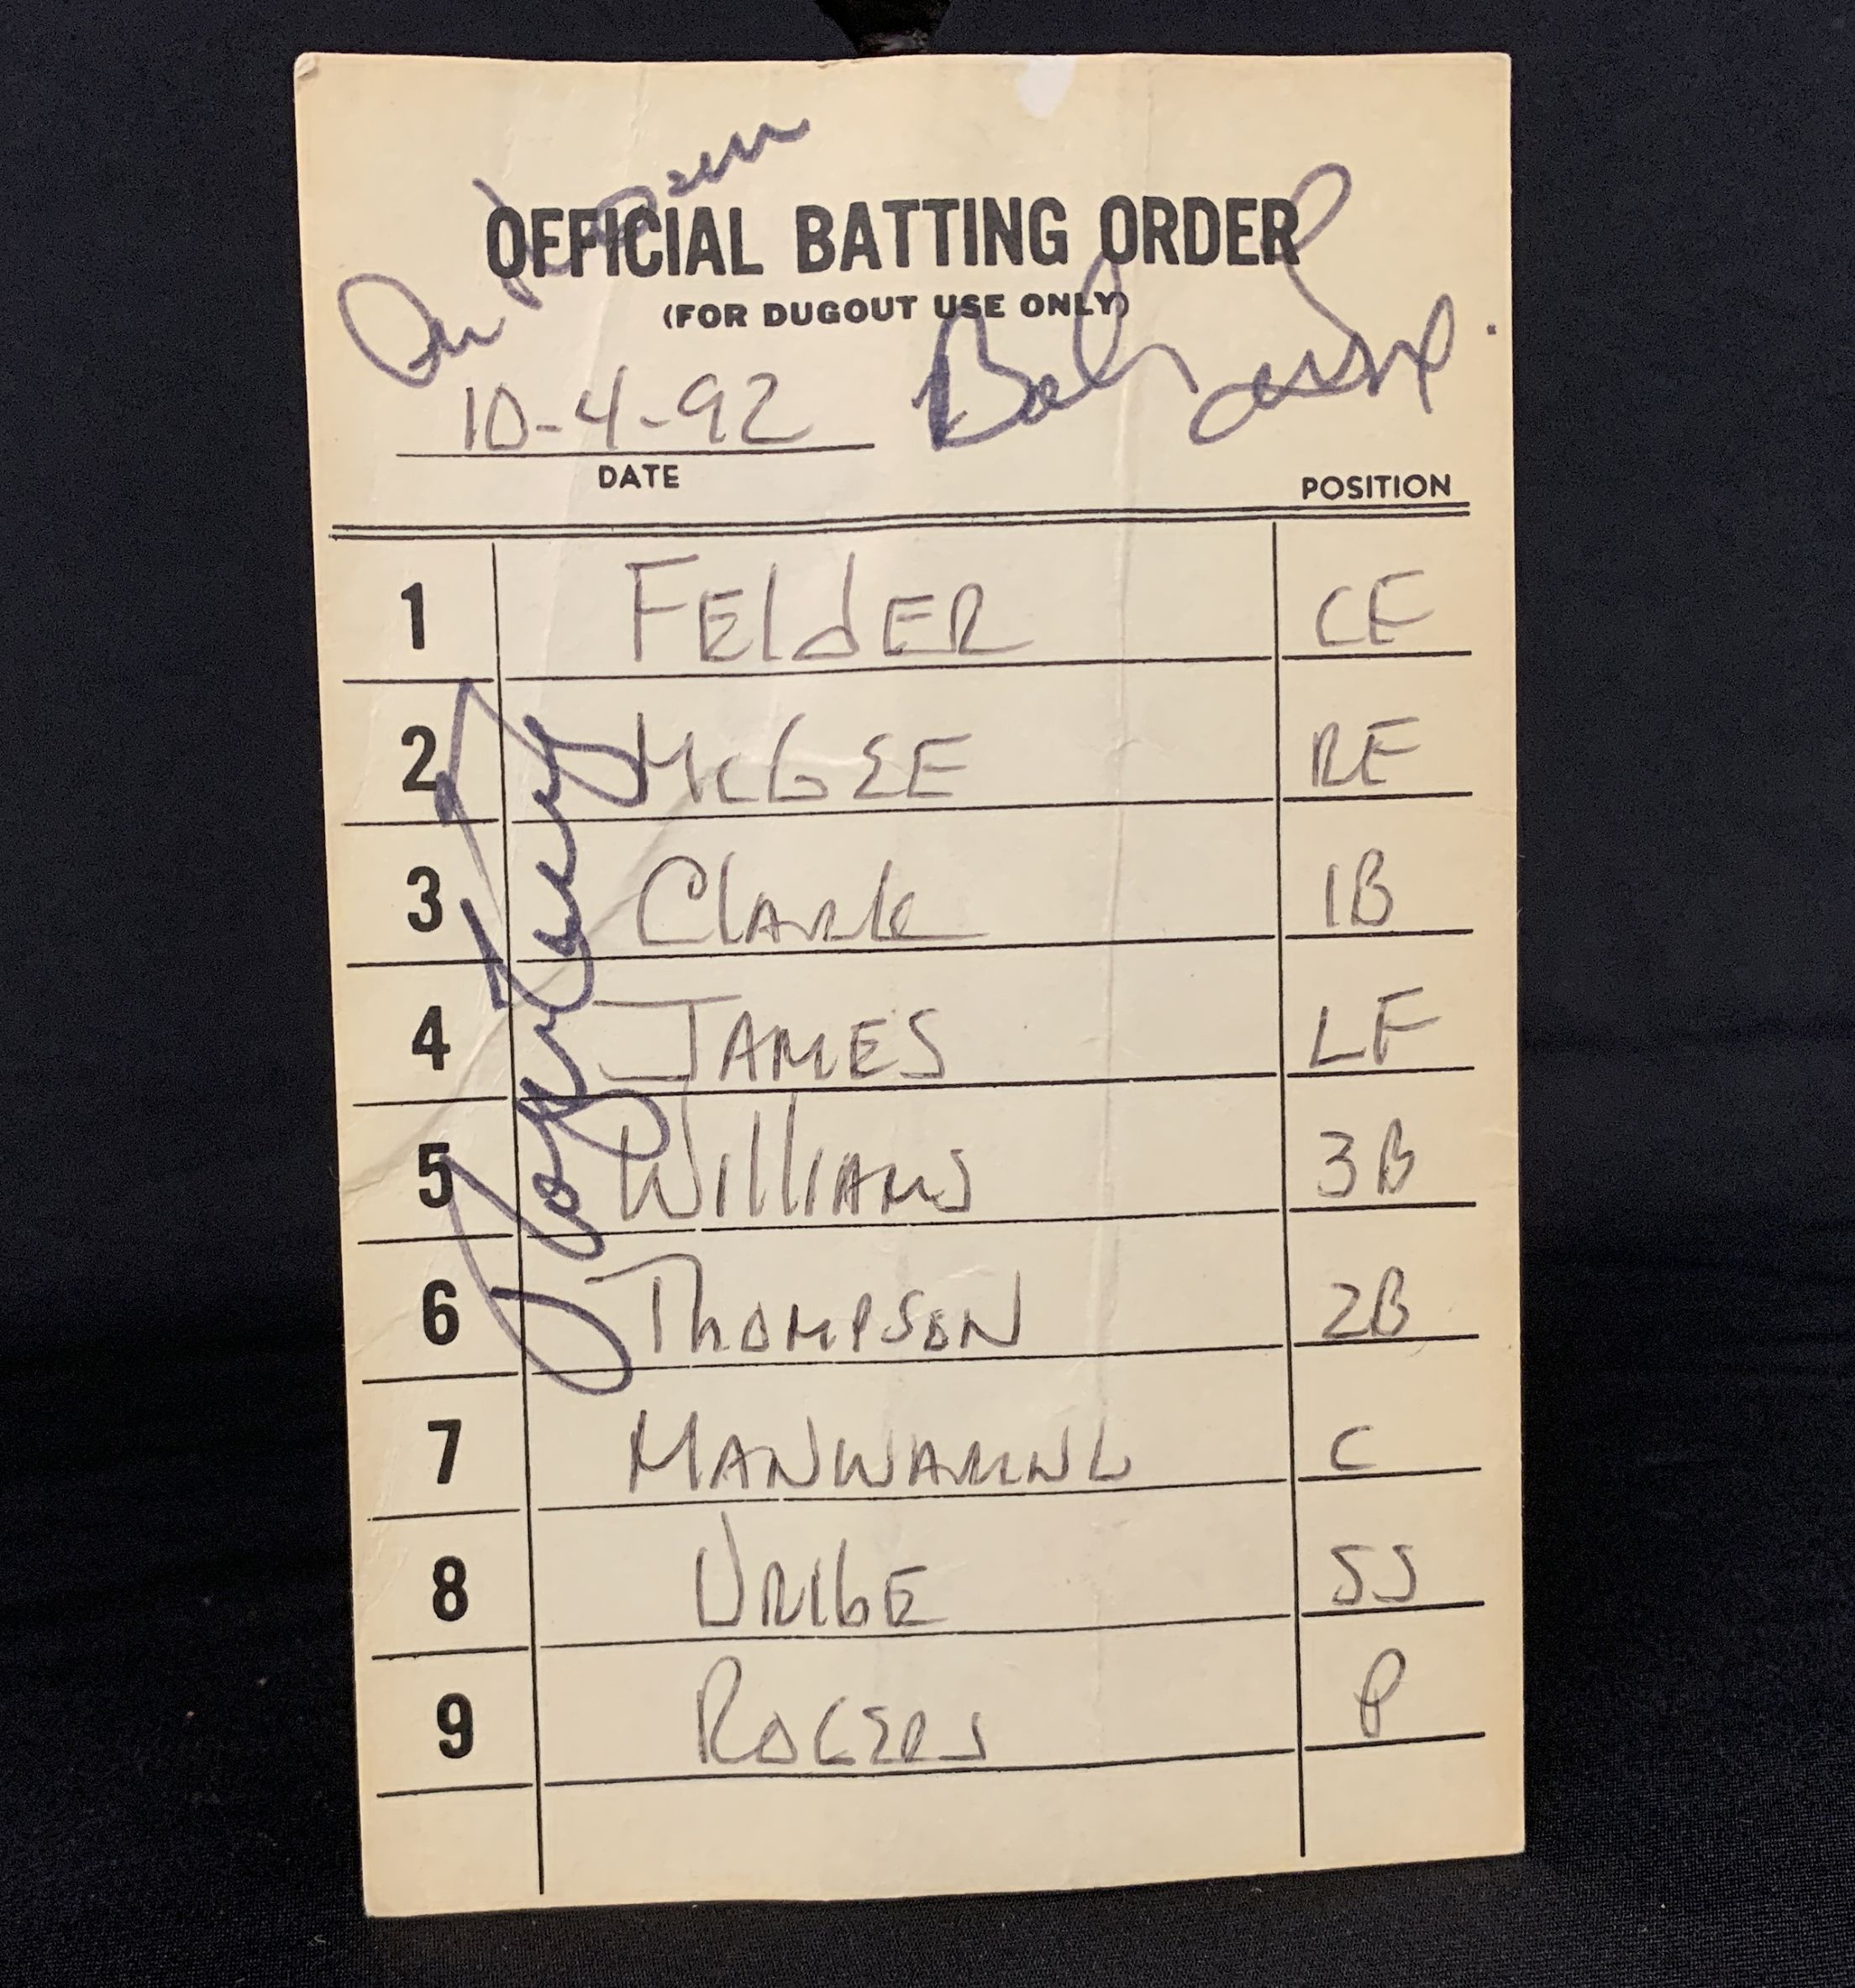 OFFICIAL BATTING ORDER
(FOR DUGOUT USE ONLY)
10-4-92
DATE
POSITION
1 FEldER CF
2 McGEE RF
3 Clark 1B
4 JAMES LF
5 WIllIAMS 3B
6 ThOMPSON 2B
7 MANWARING C
8 URIbE SS
9 ROGERS P